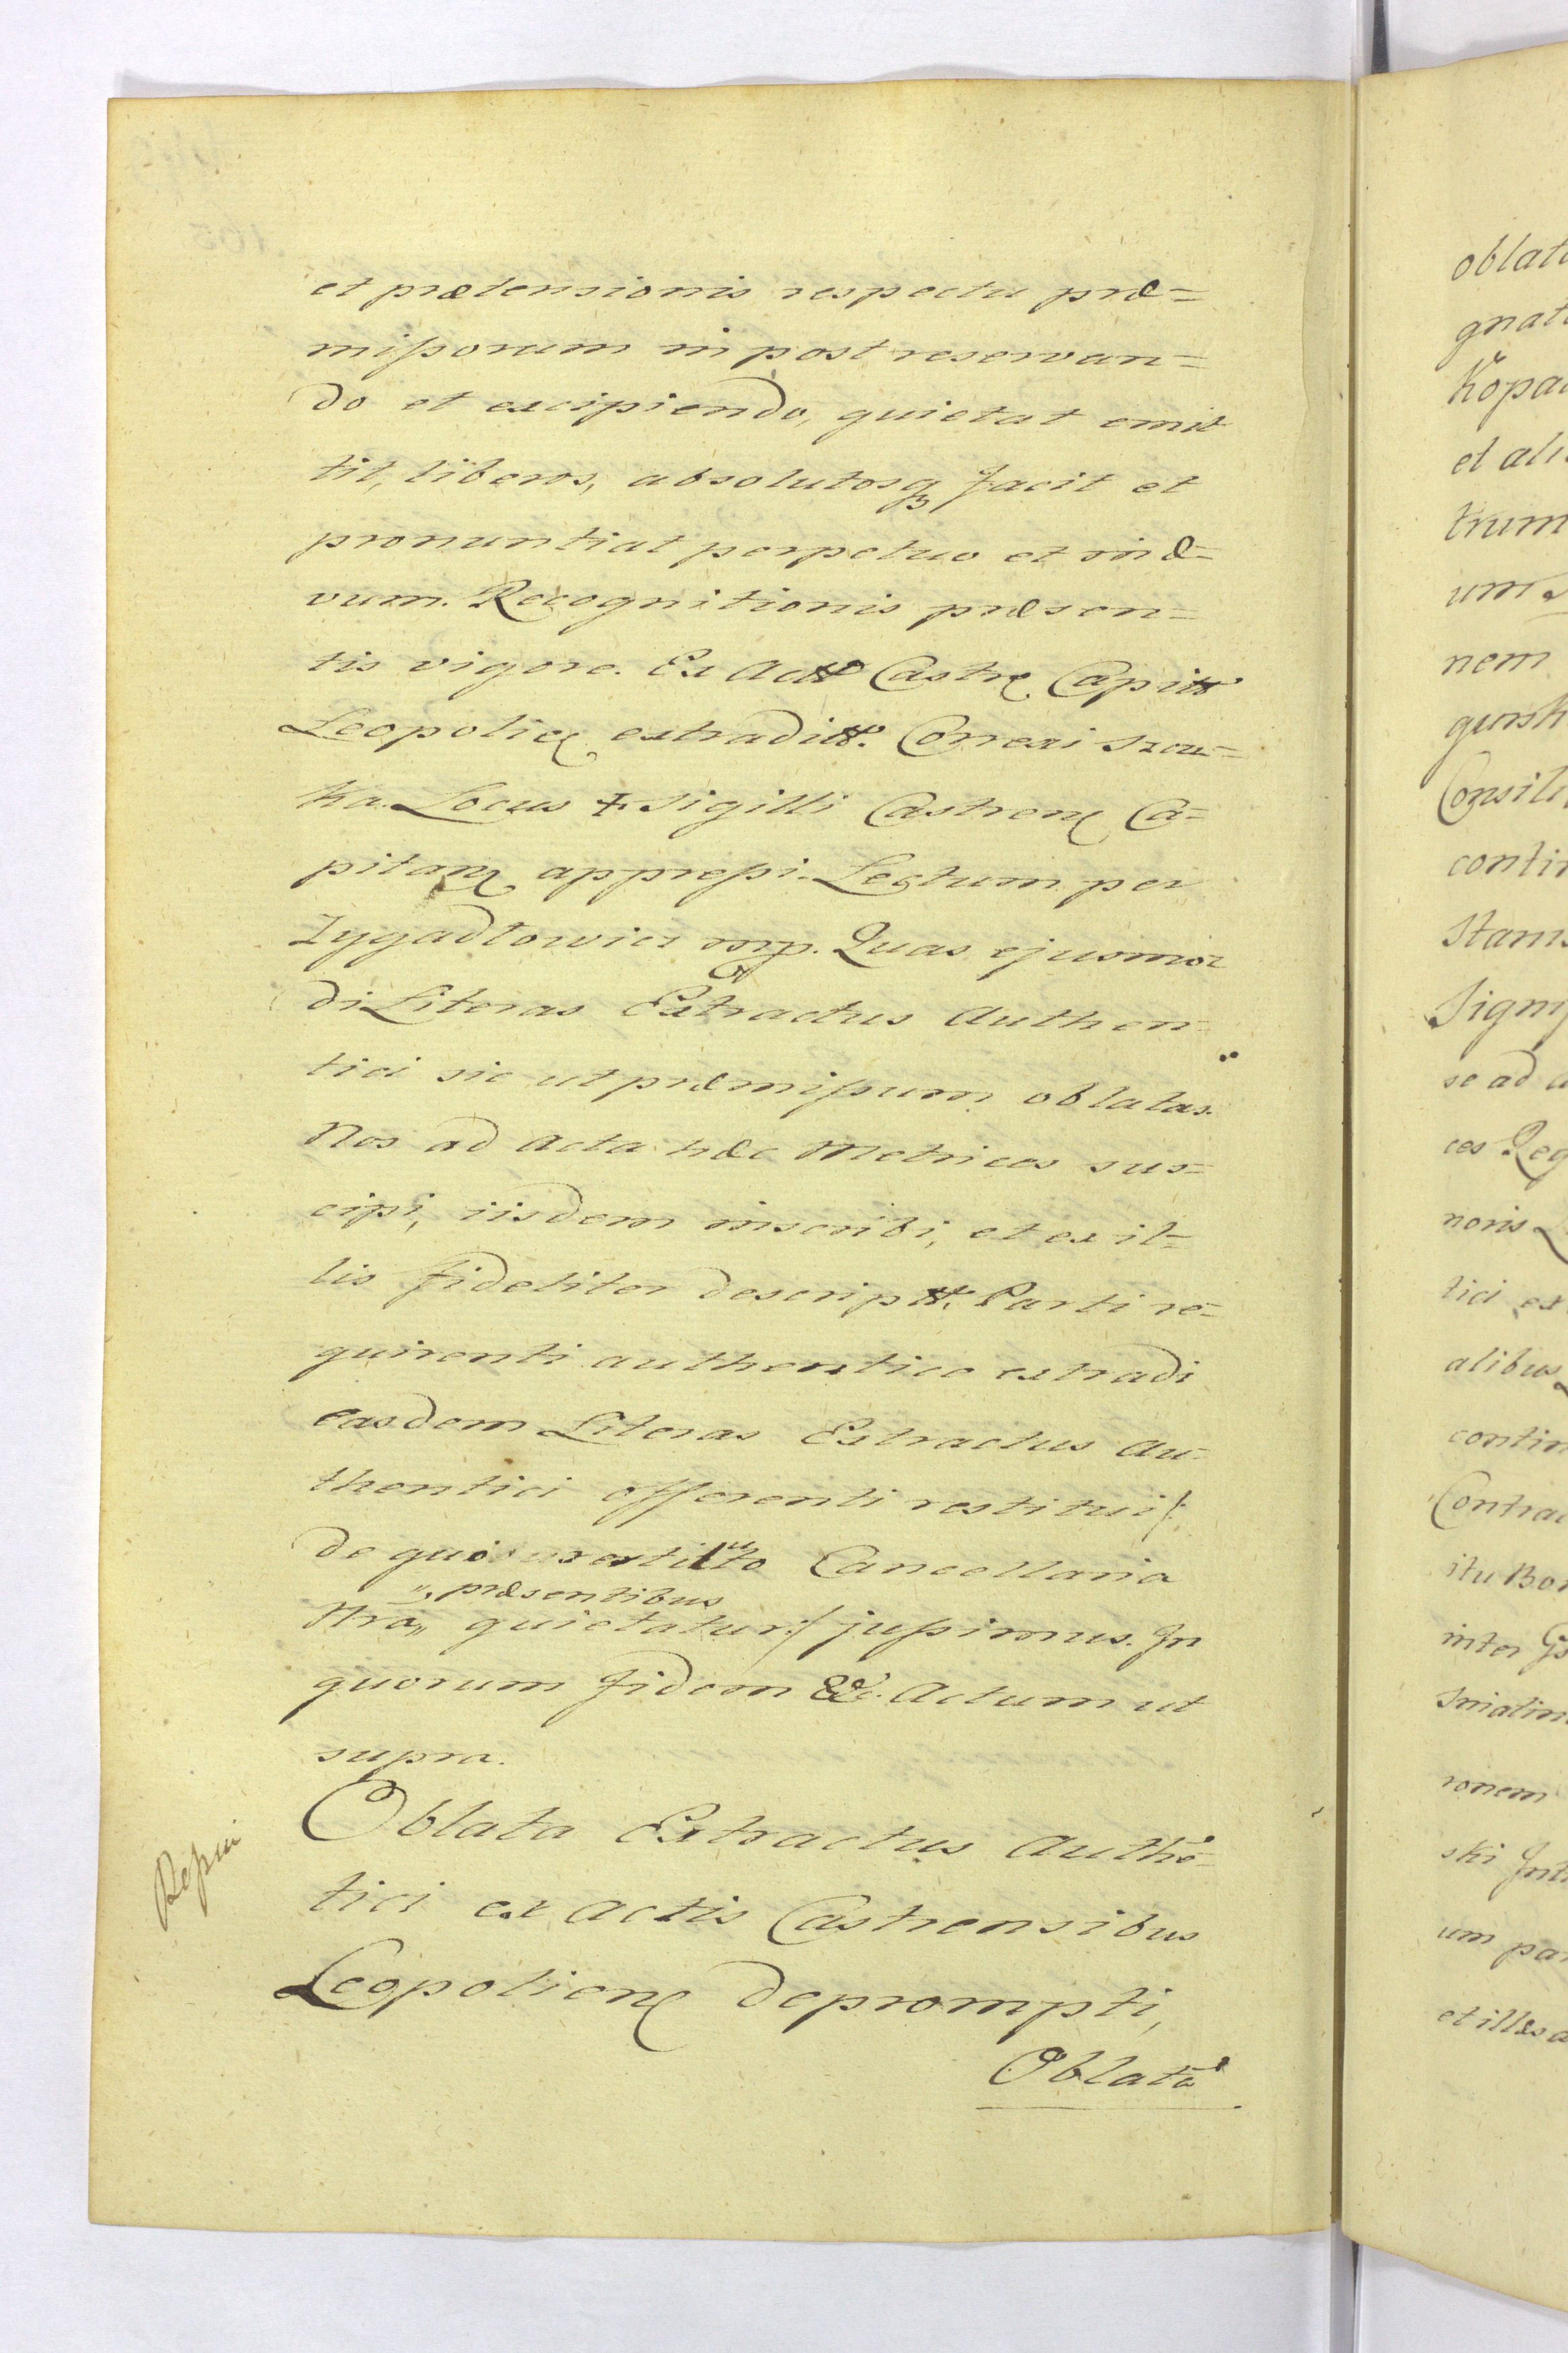 et prætensionis respectu præ=
missorum in post reservan=
do et excipiendo, quietat emit
tit, liberos, absolutosq3 facit et
pronuntiat perpetuo et in æ=
vum. Recognitionis præsen=
tis vigore. Ex Actt Castr Capitt
Leopolie extraditt. Correxi Szcu=
ka. Locus ✝ Sigilli Castren Ca=
pitan appressi. Lectum per
Zygadłowicz mp. Quas ejusmo=
di Literas Extractus Authen
tici sic ut præmissum oblatas.
Nos ad Acta hæc Metrices sus=
cipi, iisdem inscribi, et ex il=
lis fideliter descriptt. Parti re=
quirenti authentice extradi
easdem Literas Extractus Au=
thentici offerenti restitui /:
de quo restituto Cancellaria
"præsentibus
Nra" quietatur :/ jussimus. In
quorum fidem &c. Actum ut
supra.
Oblata Extractus Authē=
tici ex Actis Castrensibus
Leopolien deprompti,
Oblatā
oblat
gnat
Kopa
et ali
trum
um
nem
gursk
Consili
conti
Stanis
Signi
se ad a
ces Reg
noris
tici ex
alibus
contin
Contrac
itu Bo
inter
Sniatin
ronem
ski
um pa
et illas